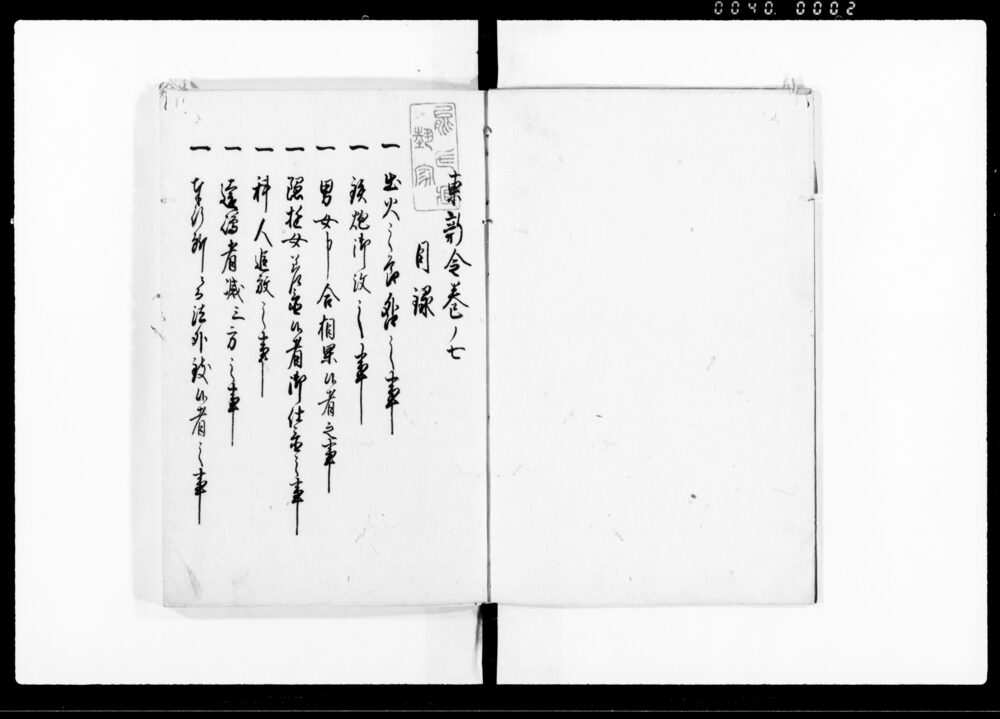 0040. 0002
東新令巻ノ七
目録
一 出火之節[...]之事
一 鉄炮御改之事
一 男女申合相果候者之事
一 隠[...]女[...]候者御仕置之事
一 科人追放之事
一 遠嶋者減三方之事
一 奉行所[...]法外致候者之事